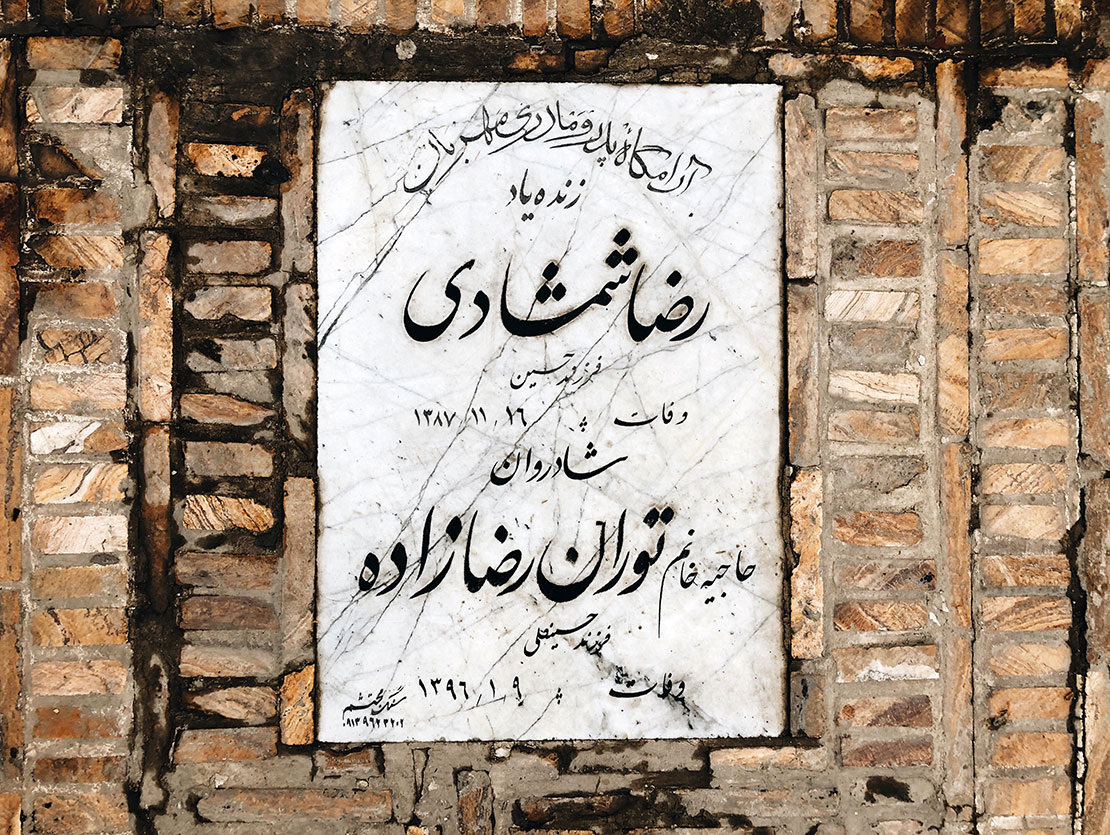 آرامگاه پدر و مادری مهربان
زنده یاد
رضا شمشادی
فرزند حسین
وفات ۱۳۸۷٫۱۱٫۱۶
شادروان
حاجیه خانم توران رضازاده
فرزند حسینقلی
وفات ۱۳۹۶٫۱٫۹
سنگ محتشم
۰۹۱۳۹۶۲۳۲۰۲